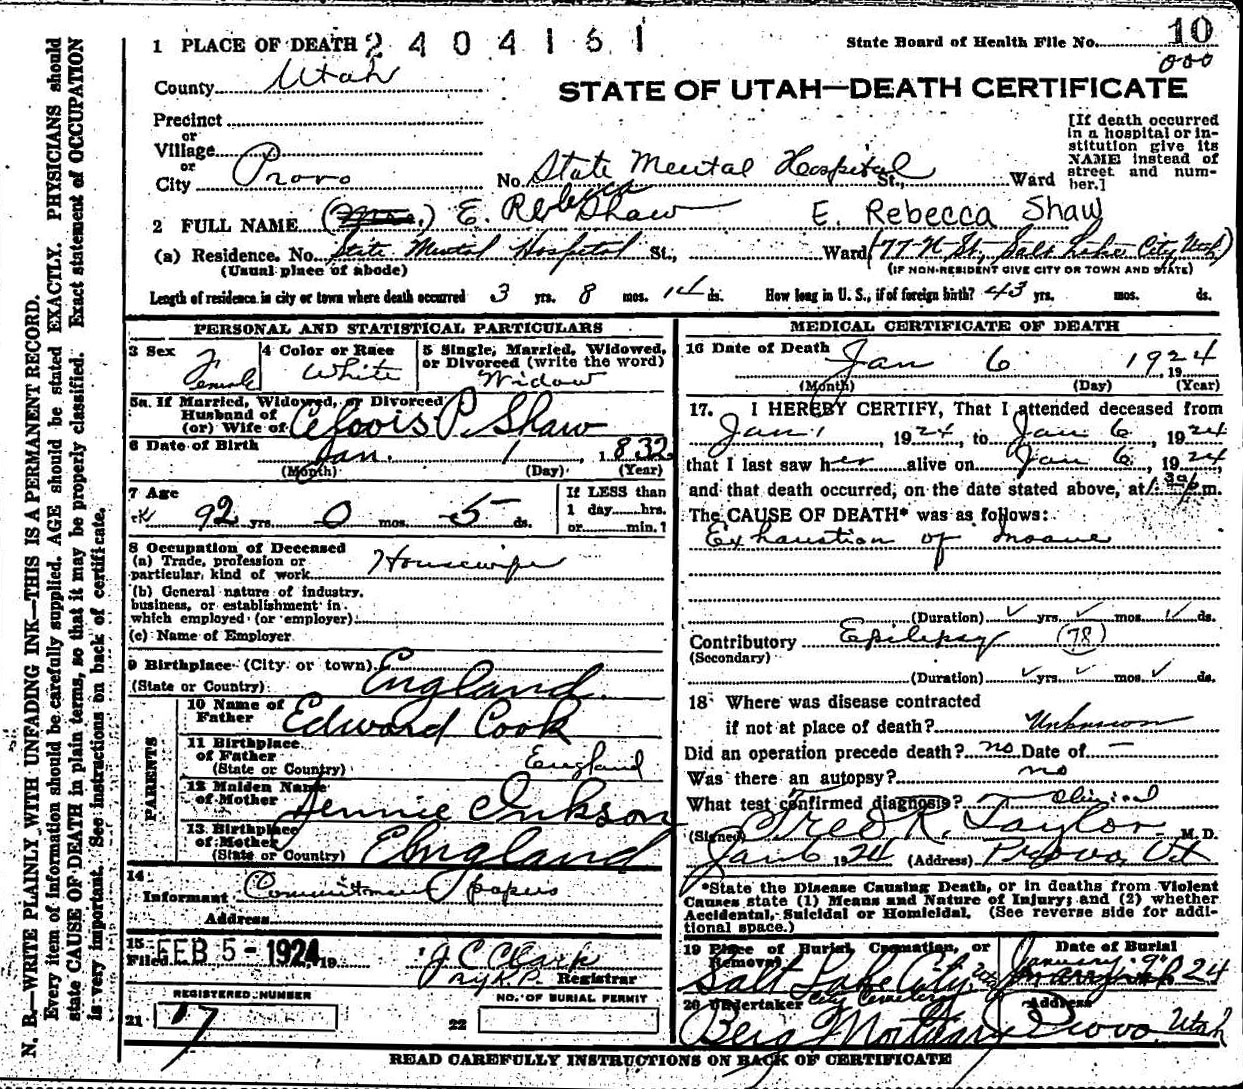 1 PLACE OF DEATH 2404161
State Board of Health File No. 10
000
County Utah
STATE OF UTAH—DEATH CERTIFICATE
Precinct
or
Village
or
City Provo No. State Mental Hospital St., Ward
[If death occurred in a hospital or institution give its NAME instead of street and number.]
2 FULL NAME (Mrs.) E. Rebecca Shaw E. Rebecca Shaw
(a) Residence. No. State Mental Hospital St., Ward (77 N St, Salt Lake City Utah)
(Usual place of abode) (IF NON-RESIDENT GIVE CITY OR TOWN AND STATE)
Length of residence in city or town where death occurred 3 yrs. 8 mos. 14 ds. How long in U. S., if of foreign birth? 43 yrs. mos. ds.
PERSONAL AND STATISTICAL PARTICULARS
3 Sex Female
4 Color or Race White
5 Single, Married, Widowed, or Divorced (write the word) Widow
5a. If Married, Widowed, or Divorced
Husband of
(or) Wife of P. Shaw
6 Date of Birth Jan. 1 1832
(Month) (Day) (Year)
7 Age 92 yrs. 0 mos. 5 ds.
If LESS than
1 day hrs.
or min.?
8 Occupation of Deceased
(a) Trade, profession or
particular, kind of work Housewife
(b) General nature of industry,
business, or establishment in
which employed (or employer)
(c) Name of Employer
9 Birthplace (City or town)
(State or Country) England
PARENTS
10 Name of Father Edward Cook
11 Birthplace of Father (State or Country) England
12 Maiden Name of Mother Jennie Inkson
13 Birthplace of Mother (State or Country) England
14
Informant Commitment papers
Address
15
Filed FEB 5-1924, 19 J C Clark
Registrar
REGISTERED NUMBER
NO. OF BURIAL PERMIT
21 17 22
MEDICAL CERTIFICATE OF DEATH
16 Date of Death Jan 6 1924
(Month) (Day) 19 (Year)
17. I HEREBY CERTIFY, That I attended deceased from
Jan 1, 1924, to Jan 6, 1924
that I last saw her alive on Jan 6, 1924,
and that death occurred, on the date stated above, at 1:30 p.m.
The CAUSE OF DEATH* was as follows:
Exhaustion of Insane
(Duration) yrs. mos. ds.
Contributory Epilepsy (78)
(Secondary)
(Duration) yrs. mos. ds.
18 Where was disease contracted
if not at place of death? Unknown
Did an operation precede death? no Date of —
Was there an autopsy? no
What test confirmed diagnosis? Clinical
(Signed) Fred R. Taylor M. D.
Jan 6 1924 (Address) Provo, Ut
*State the Disease Causing Death, or in deaths from Violent
Causes state (1) Means and Nature of Injury; and (2) whether
Accidental, Suicidal or Homicidal. (See reverse side for addi-
tional space.)
19 Place of Burial, Cremation, or Removal Salt Lake City, Utah
City Cemetery
Date of Burial January 9 1924
20 Undertaker Berg Mortuary
Address Provo, Utah
READ CAREFULLY INSTRUCTIONS ON BACK OF CERTIFICATE
N. B.—WRITE PLAINLY WITH UNFADING INK—THIS IS A PERMANENT RECORD.
Every item of information should be carefully supplied. AGE should be stated EXACTLY. PHYSICIANS should
state CAUSE OF DEATH in plain terms, so that it may be properly classified. Exact statement of OCCUPATION
is very important. See instructions on back of certificate.